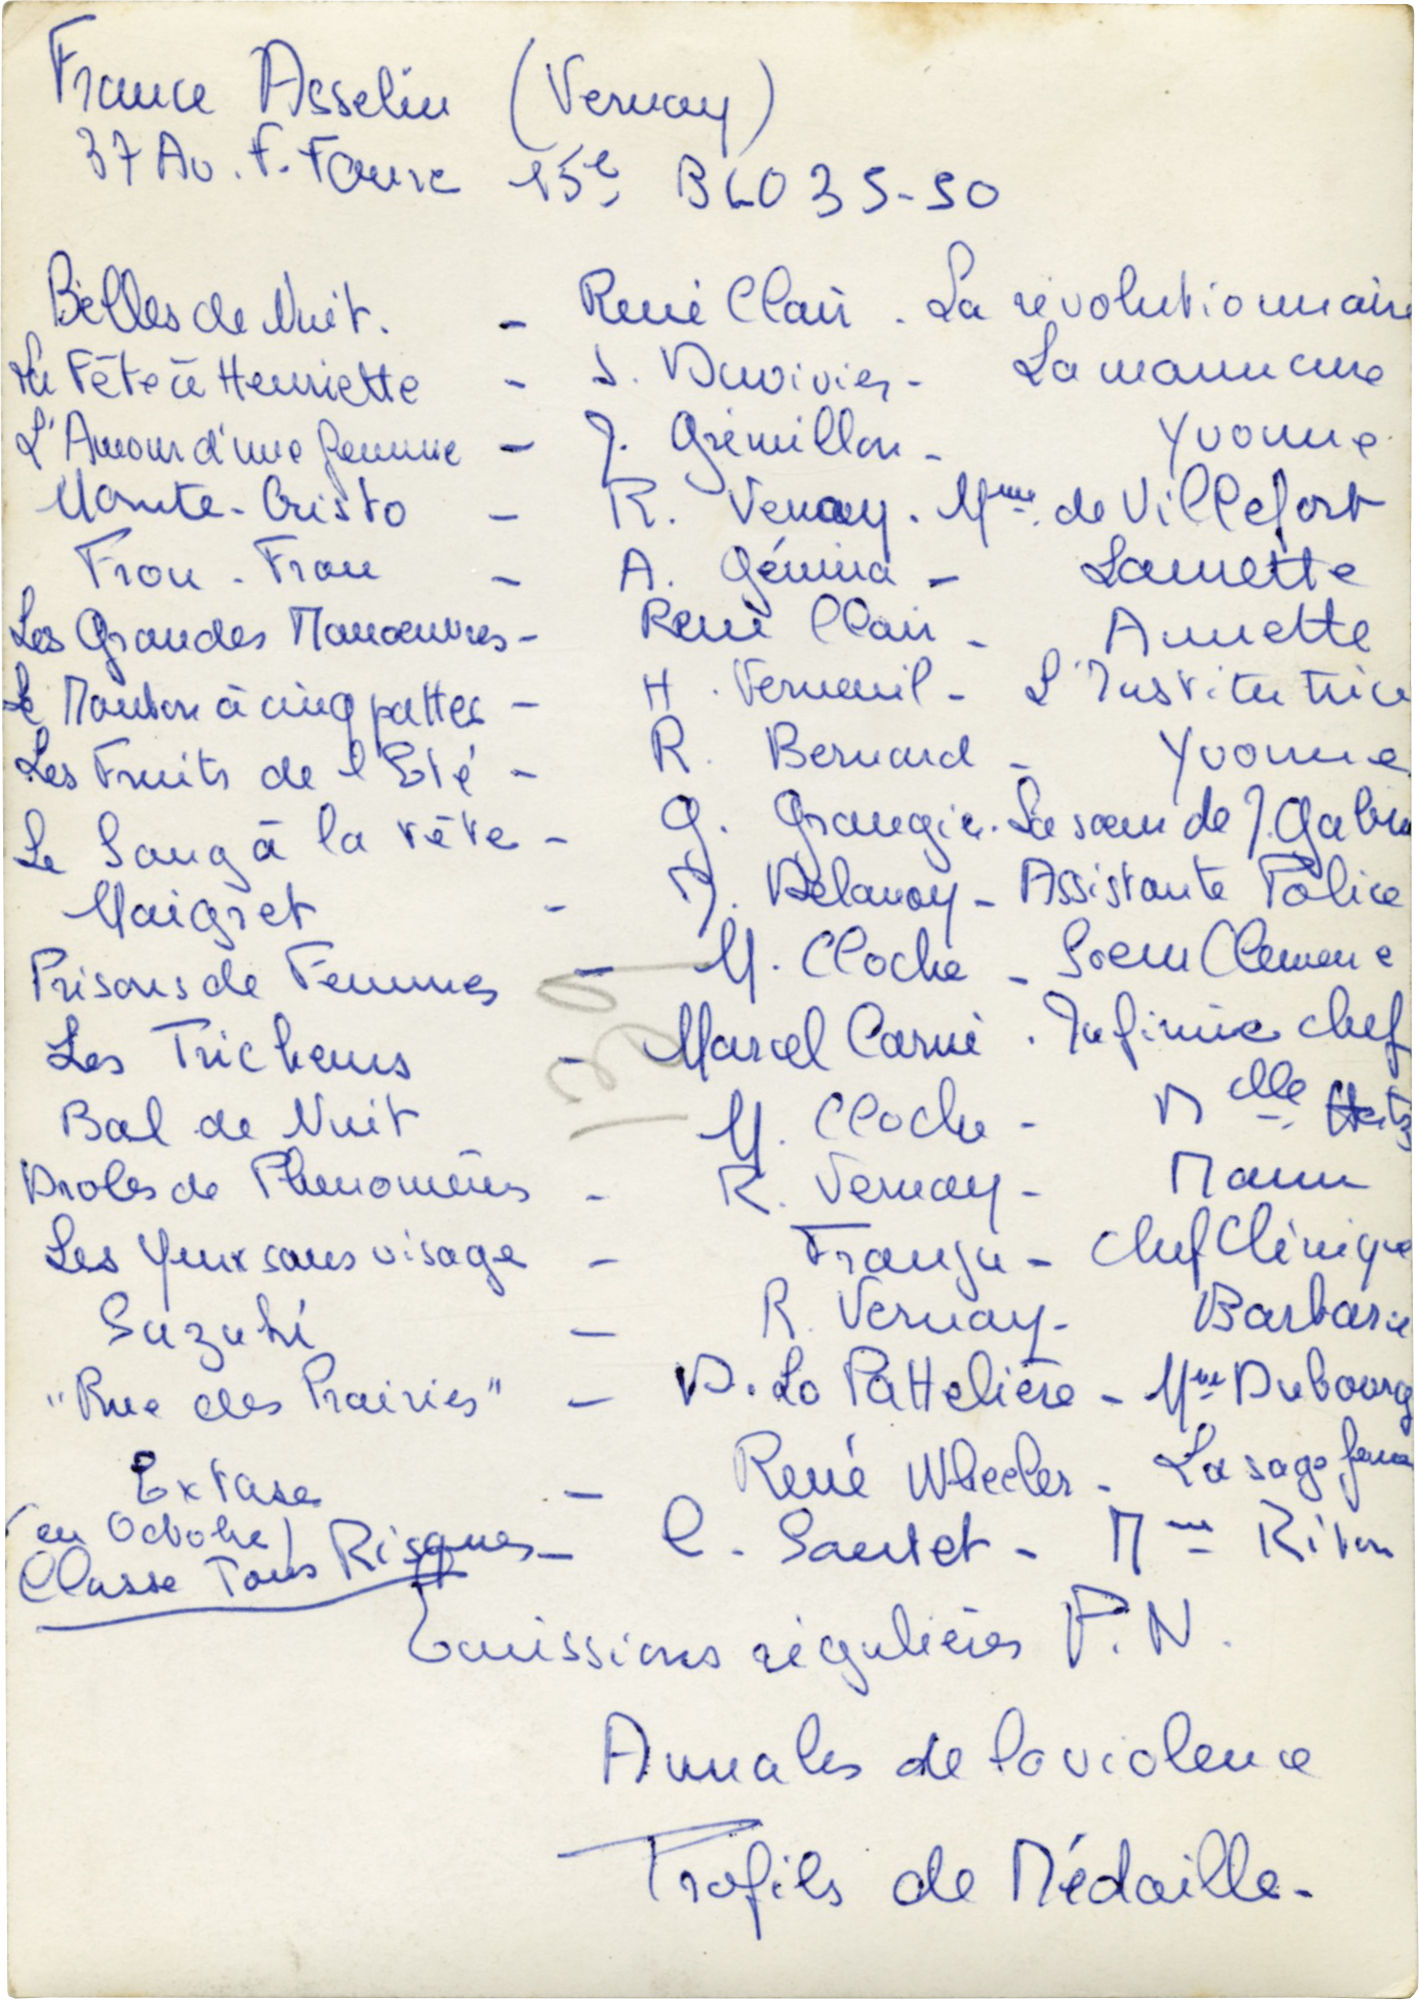 France Asselin (Vernay)
37 Av. F. Faure 15e BLO 35-50
Belles de Nuit. - René Clair. La révolutionnaire
La Fête à Henriette - J. Duvivier - La mannequin
L'Amour d'une femme - J. Grémillon - Yvonne
Monte-Cristo - R. Vernay. Mme de Villefort
Frou-Frou - A. Génina -
Les Grandes Manoeuvres - René Clair - Annette
Le Mouton à cinq pattes - H. Verneuil - L'Institutrice
Les Fruits de l'Eté - R. Bernard - Yvonne
Le Sang à la tête - G. Grangier. La soeur de J. Gabin
Maigret - J. Delanoy - Assistante Police
Prisons de Femmes - M. Cloche - Soeur Clemence
Les Tricheurs - Marcel Carné. Infirmière chef
Bal de Nuit - M. Cloche - Melle
Droles de Phenomènes - R. Vernay - Maun
Les Yeux sans visage - Franju - Chef Clinique
Suzuki - R. Vernay - Barbara
"Rue des Prairies" - D. La Pattelière - Mme Dubourg
Extase - René Wheeler - La sage femme
(en Octobre)
Classe Tous Risques - C. Sautet - Mme Riton
Emissions régulières P.N.
Annales de la violence
Profils de Médaille -